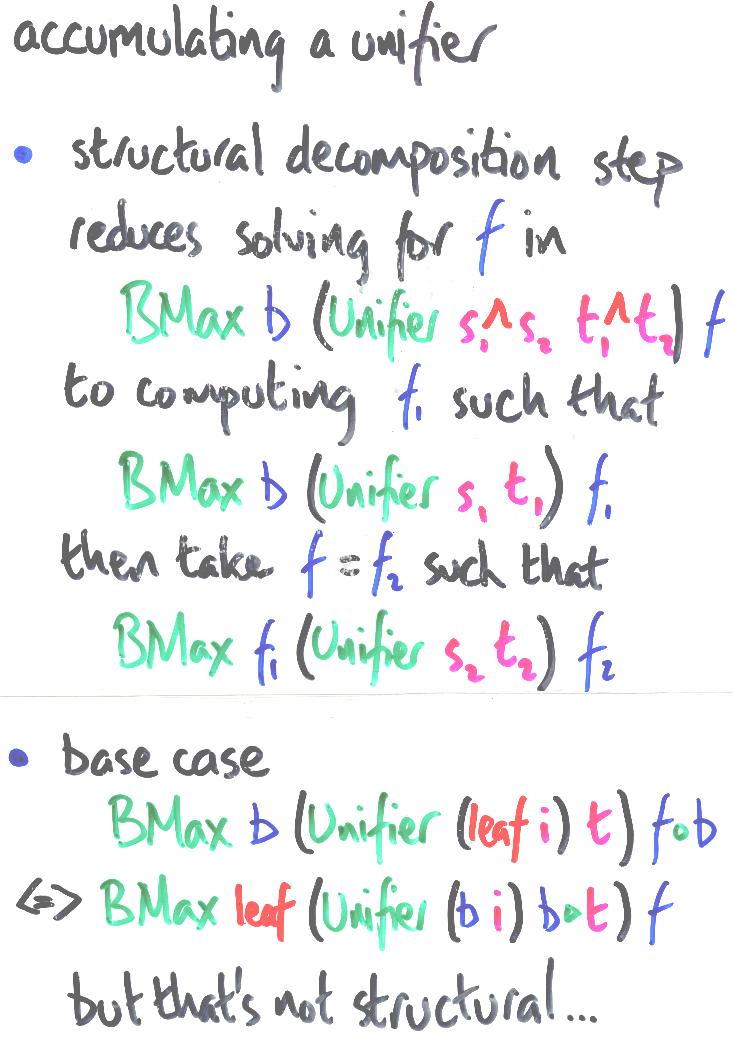 accumulating a unifier
• structural decomposition step
reduces solving for f in
BMax b (Unifier s₁^s₂ t₁^t₂) f
to computing f₁ such that
BMax b (Unifier s₁ t₁) f₁
then take f = f₂ such that
BMax f₁ (Unifier s₂ t₂) f₂
• base case
BMax b (Unifier (leaf i) t) f∘b
<=> BMax leaf (Unifier (b i) b⋄t) f
but that's not structural...